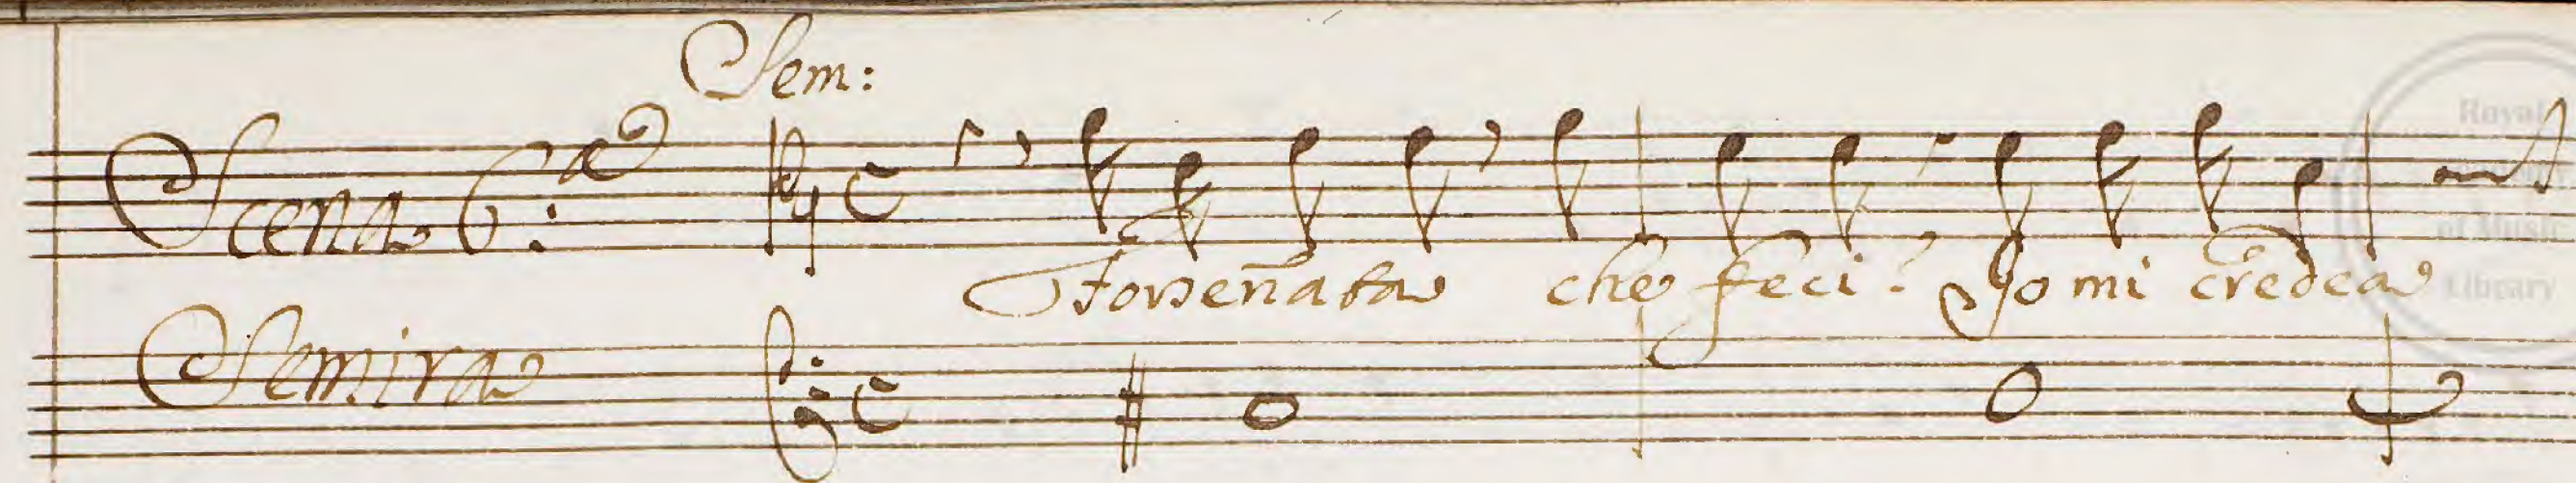 Sem:
Scena 6:a
Forsen̄ata che feci? Io mi credea
Semira
Royal
of Music
Library